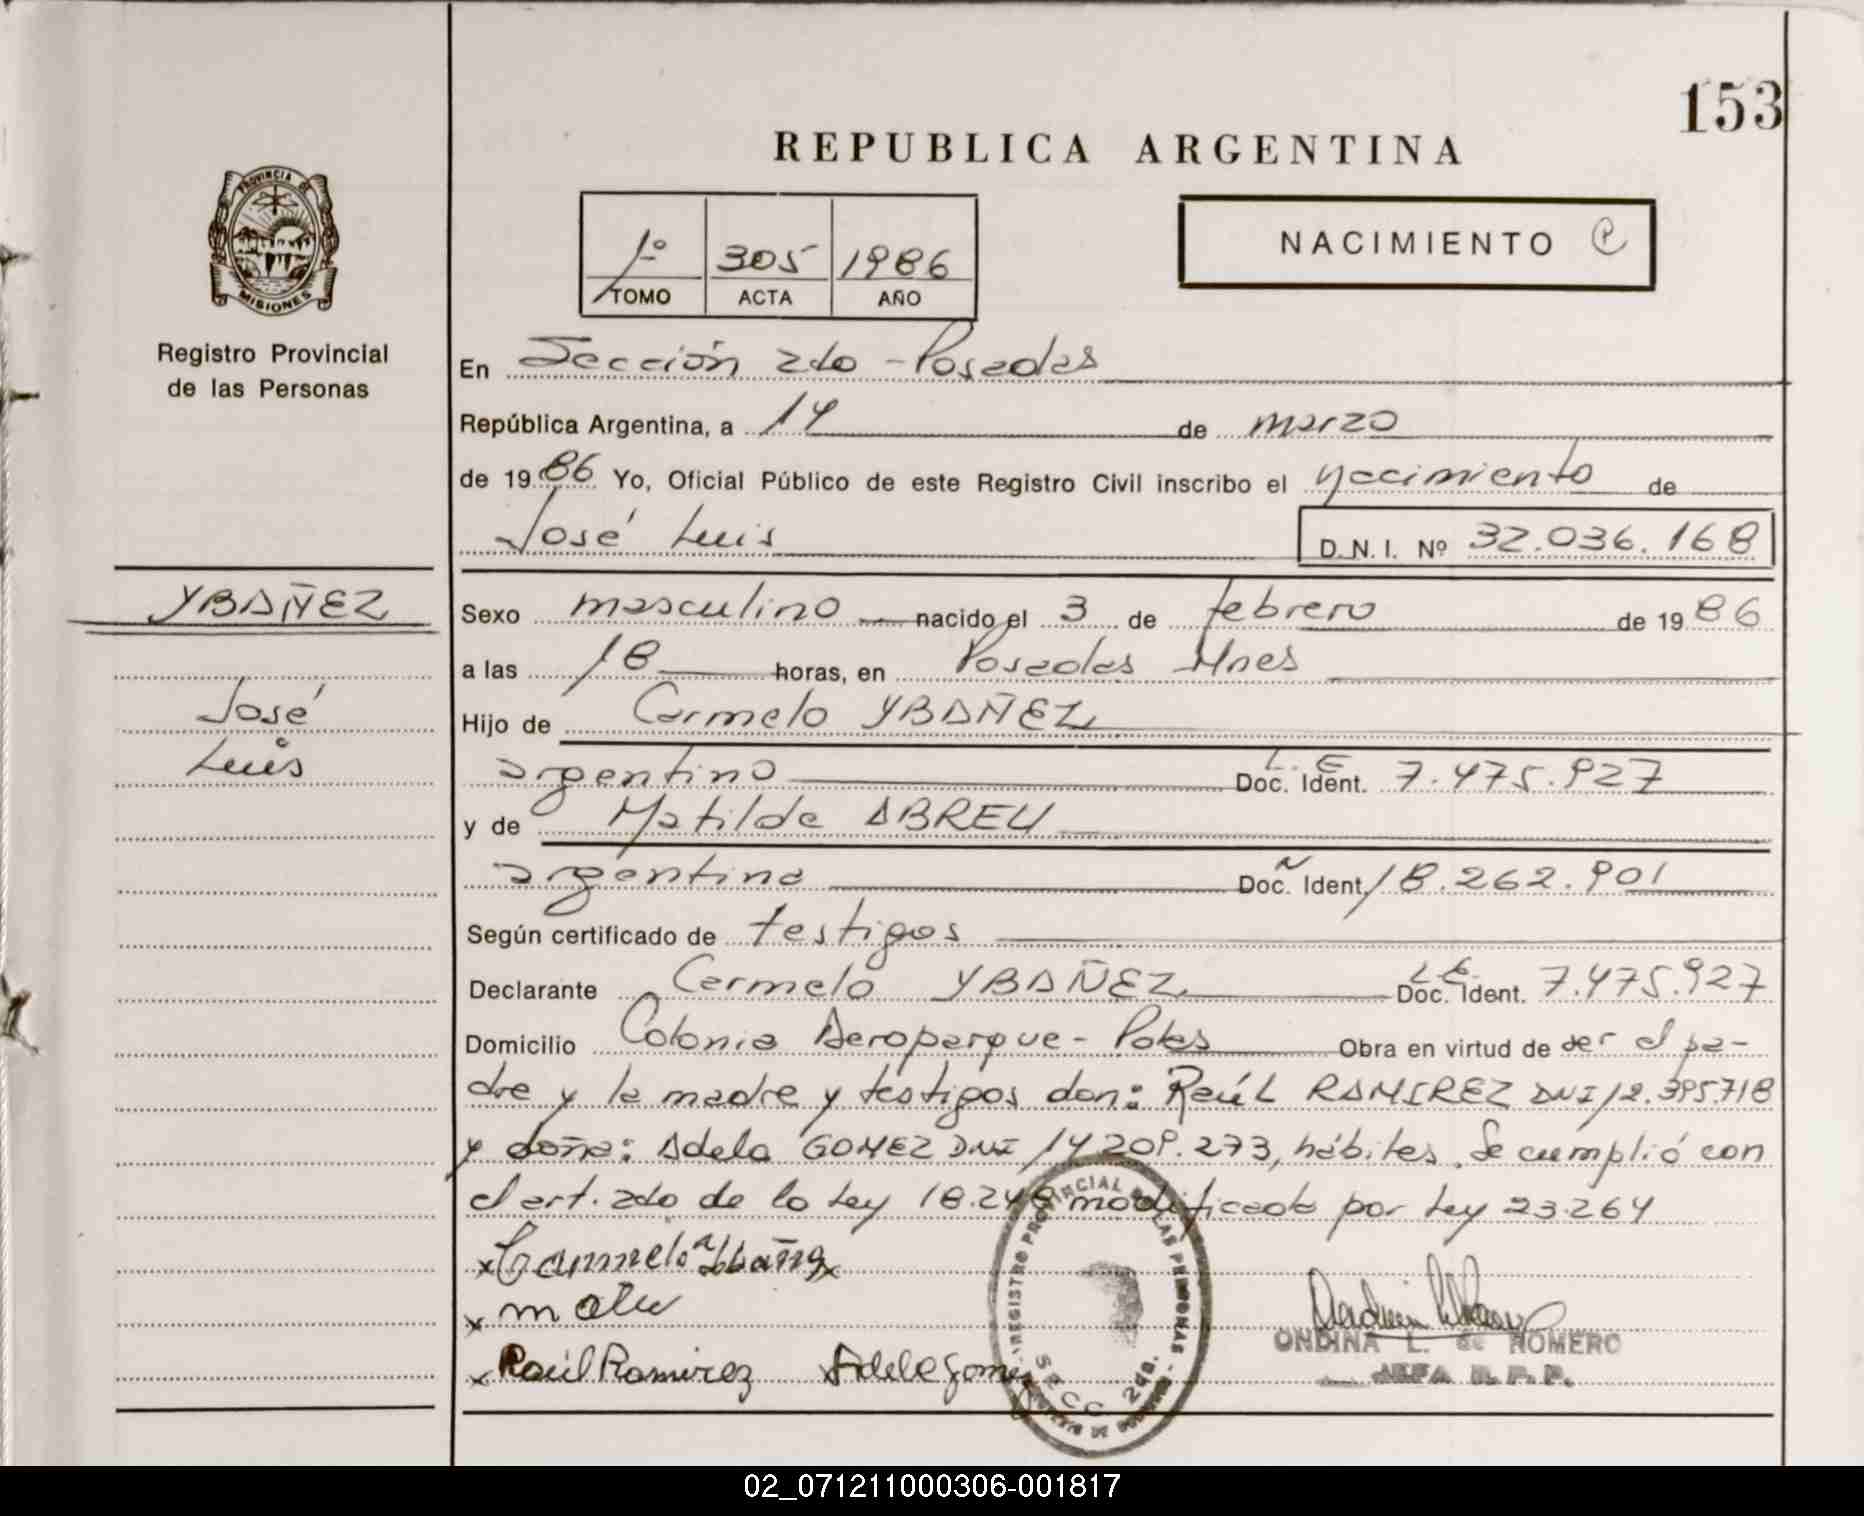 153
REPUBLICA ARGENTINA
PROVINCIA DE
MISIONES
Registro Provincial
de las Personas
1º 305 1986
TOMO ACTA AÑO
NACIMIENTO
En Sección 2do - Posadas
República Argentina, a 14 de marzo
de 1986 Yo, Oficial Público de este Registro Civil inscribo el nacimiento de
José Luis D.N.I. Nº 32.036.168
YBAÑEZ
José
Luis
Sexo masculino nacido el 3 de febrero de 1986
a las 18 horas, en Posadas Mnes
Hijo de Carmelo YBAÑEZ
argentino L.E Doc. Ident. 7.475.927
y de Matilde ABREU
argentina Doc. Ident. 18.262.901
Según certificado de testigos
Declarante Carmelo YBAÑEZ L.E. Doc. Ident. 7.475.927
Domicilio Colonia Aeroparque - Pdas Obra en virtud de ser el pa-
dre y la madre y testigos don: Raúl RAMIREZ DNI 12.395.718
y doña: Adela GOMEZ DNI 14.209.273, hábiles. Se cumplió con
el art. 2do de la Ley 18.248 modificado por Ley 23.264
x Carmelo Ybañez
x
x Raúl Ramirez x Adela Gomez
REGISTRO PROVINCIAL DE LAS PERSONAS
SECC. 2da.
ONDINA L. de ROMERO
JEFA R. P. P.
02_071211000306-001817